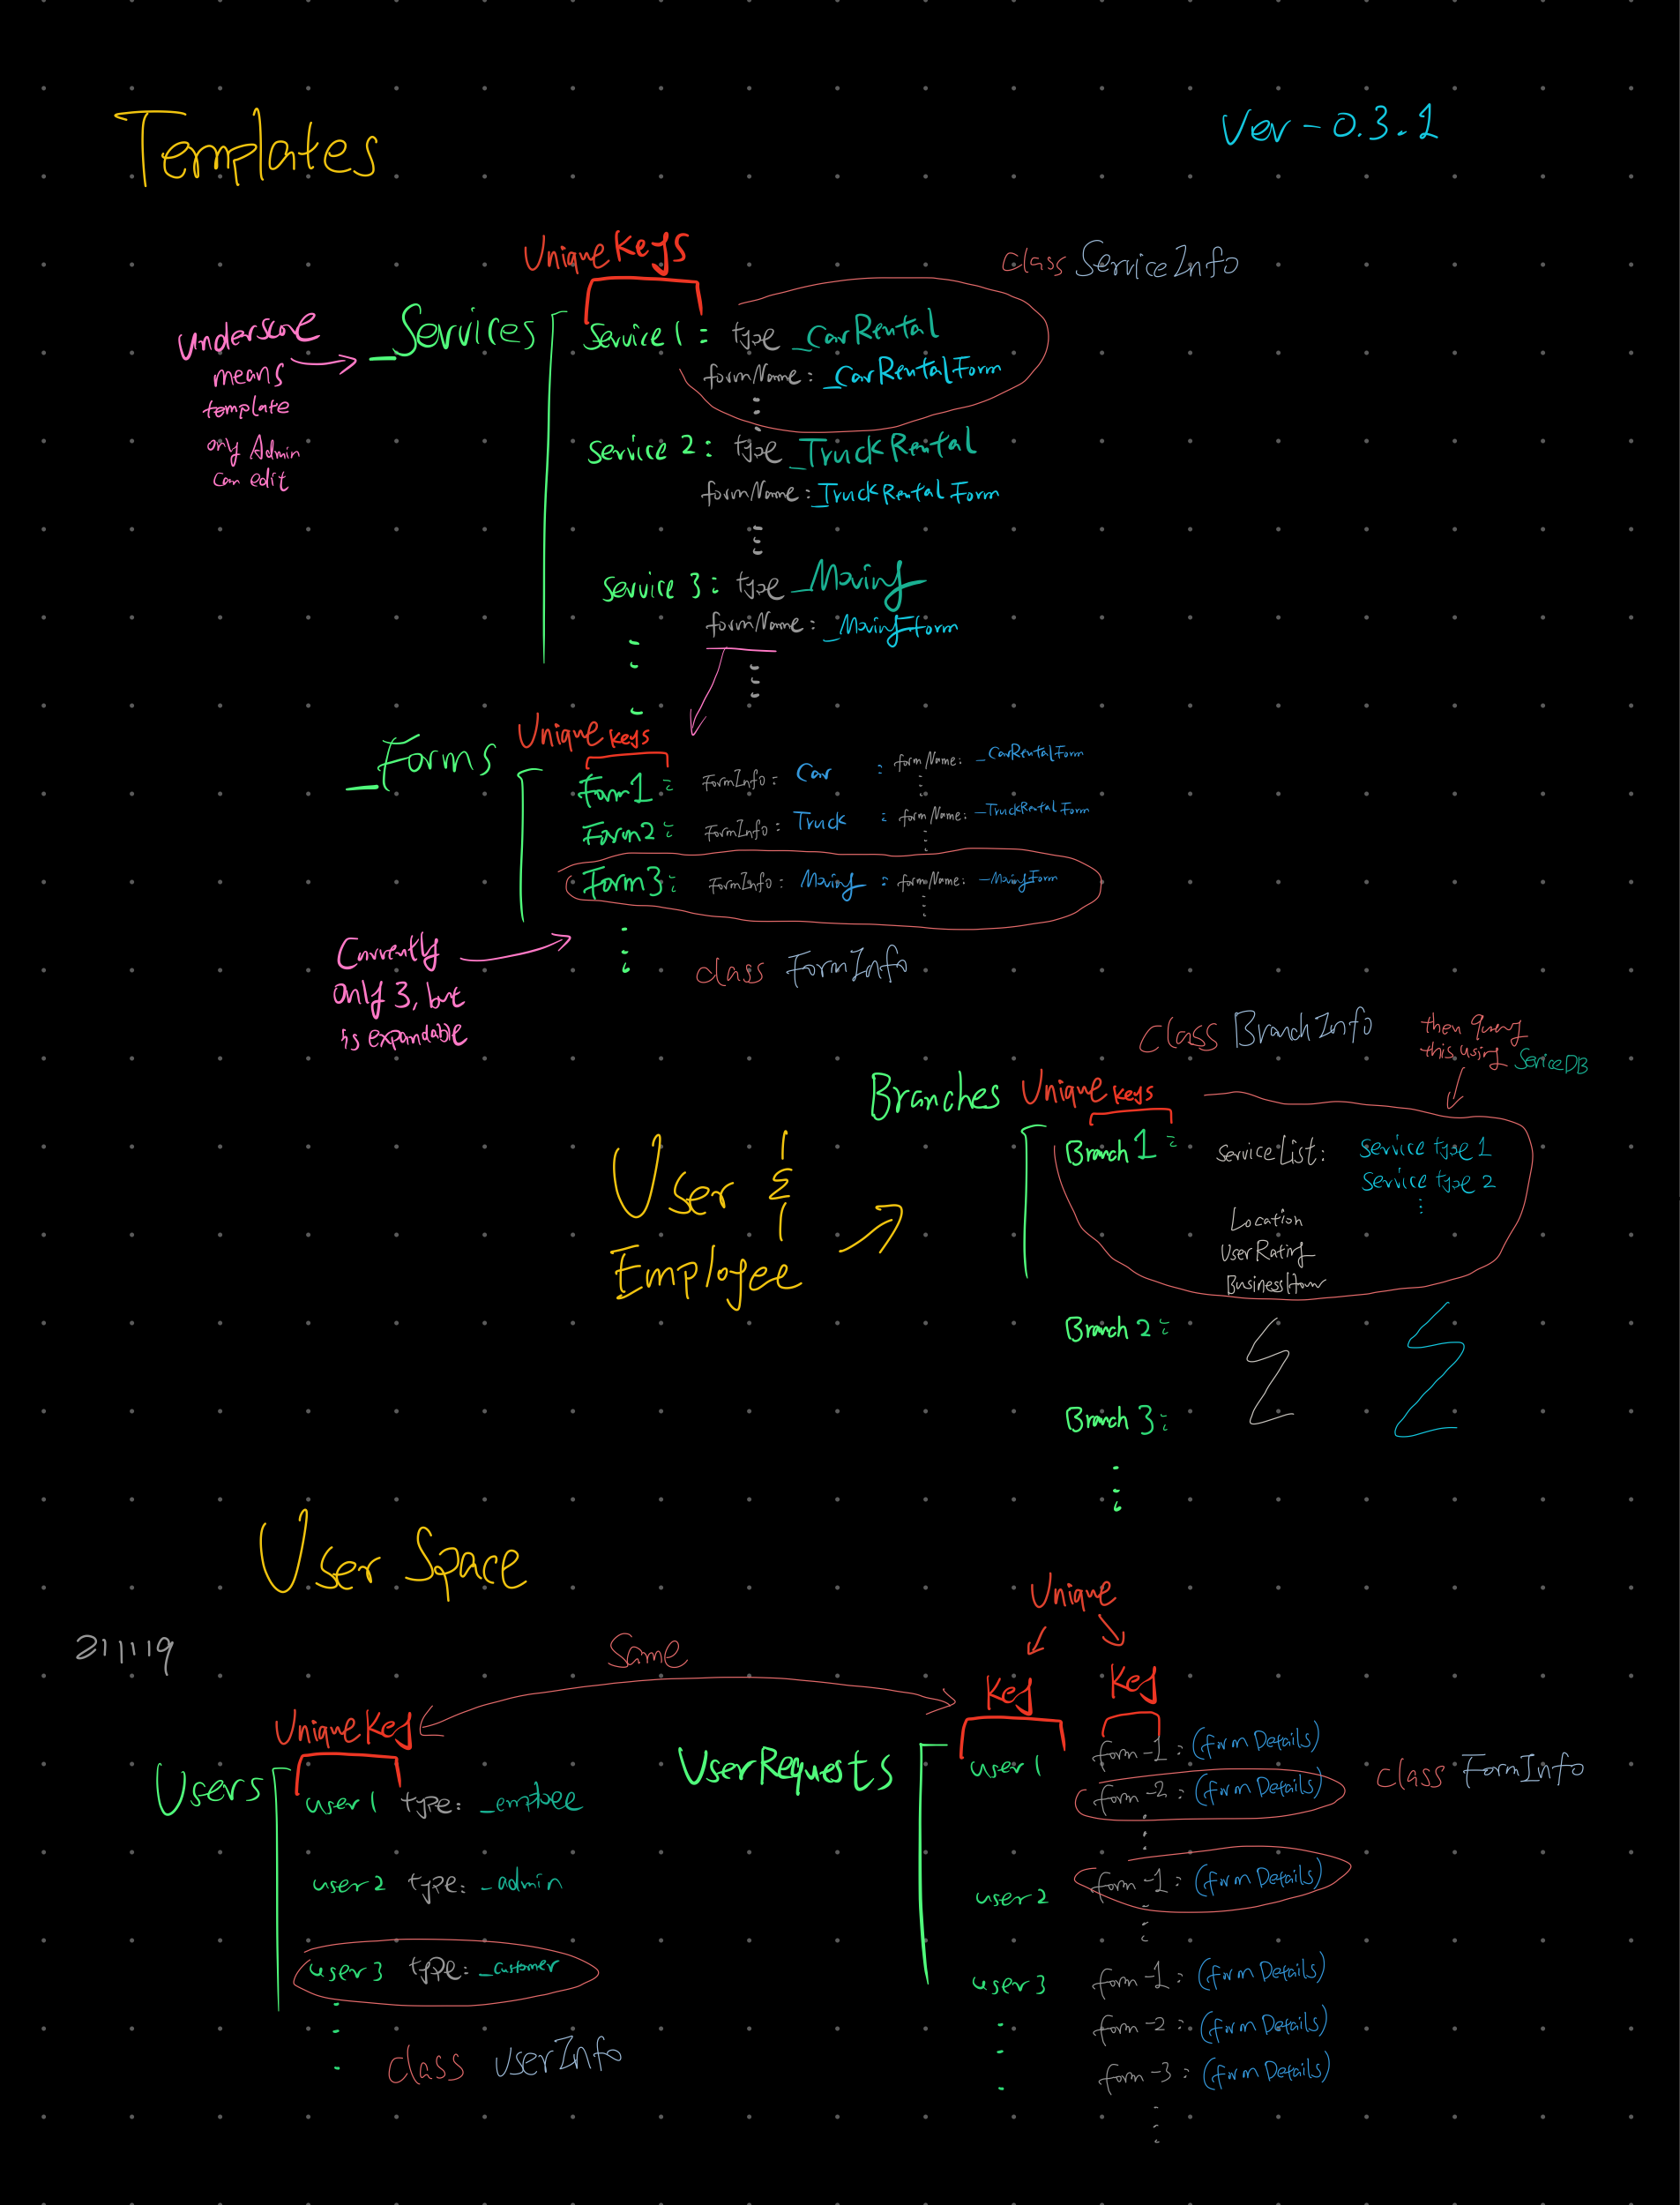 Templates
Ver-0.3.1
Unique Keys
class ServiceInfo
underscore
means
template
only Admin
can edit
_Services
Service 1: type _CarRental
formName: _CarRentalForm
Service 2: type _TruckRental
formName: _TruckRentalForm
Service 3: type _Moving
formName: _MovingForm
Unique keys
_Forms
Form1: FormInfo: Car : formName: _CarRentalForm
Form2: FormInfo: Truck : formName: _TruckRentalForm
Form3: FormInfo: Moving : formName: _MovingForm
Currently
only 3, but
is expandable
class FormInfo
class BranchInfo
then query
this using ServiceDB
Branches
Unique keys
User &
Employee
Branch 1: serviceList: Service type 1
Service type 2
Location
UserRating
BusinessHour
Branch 2:
Branch 3:
User Space
211119
Same
Unique
Key Key
Unique Key
Users
user1 type: _emploee
user2 type: _admin
user3 type: _customer
class UserInfo
UserRequests
user1 form-1: (form Details)
form-2: (form Details)
class FormInfo
user2 form-1: (form Details)
user3 form-1: (form Details)
form-2: (form Details)
form-3: (form Details)